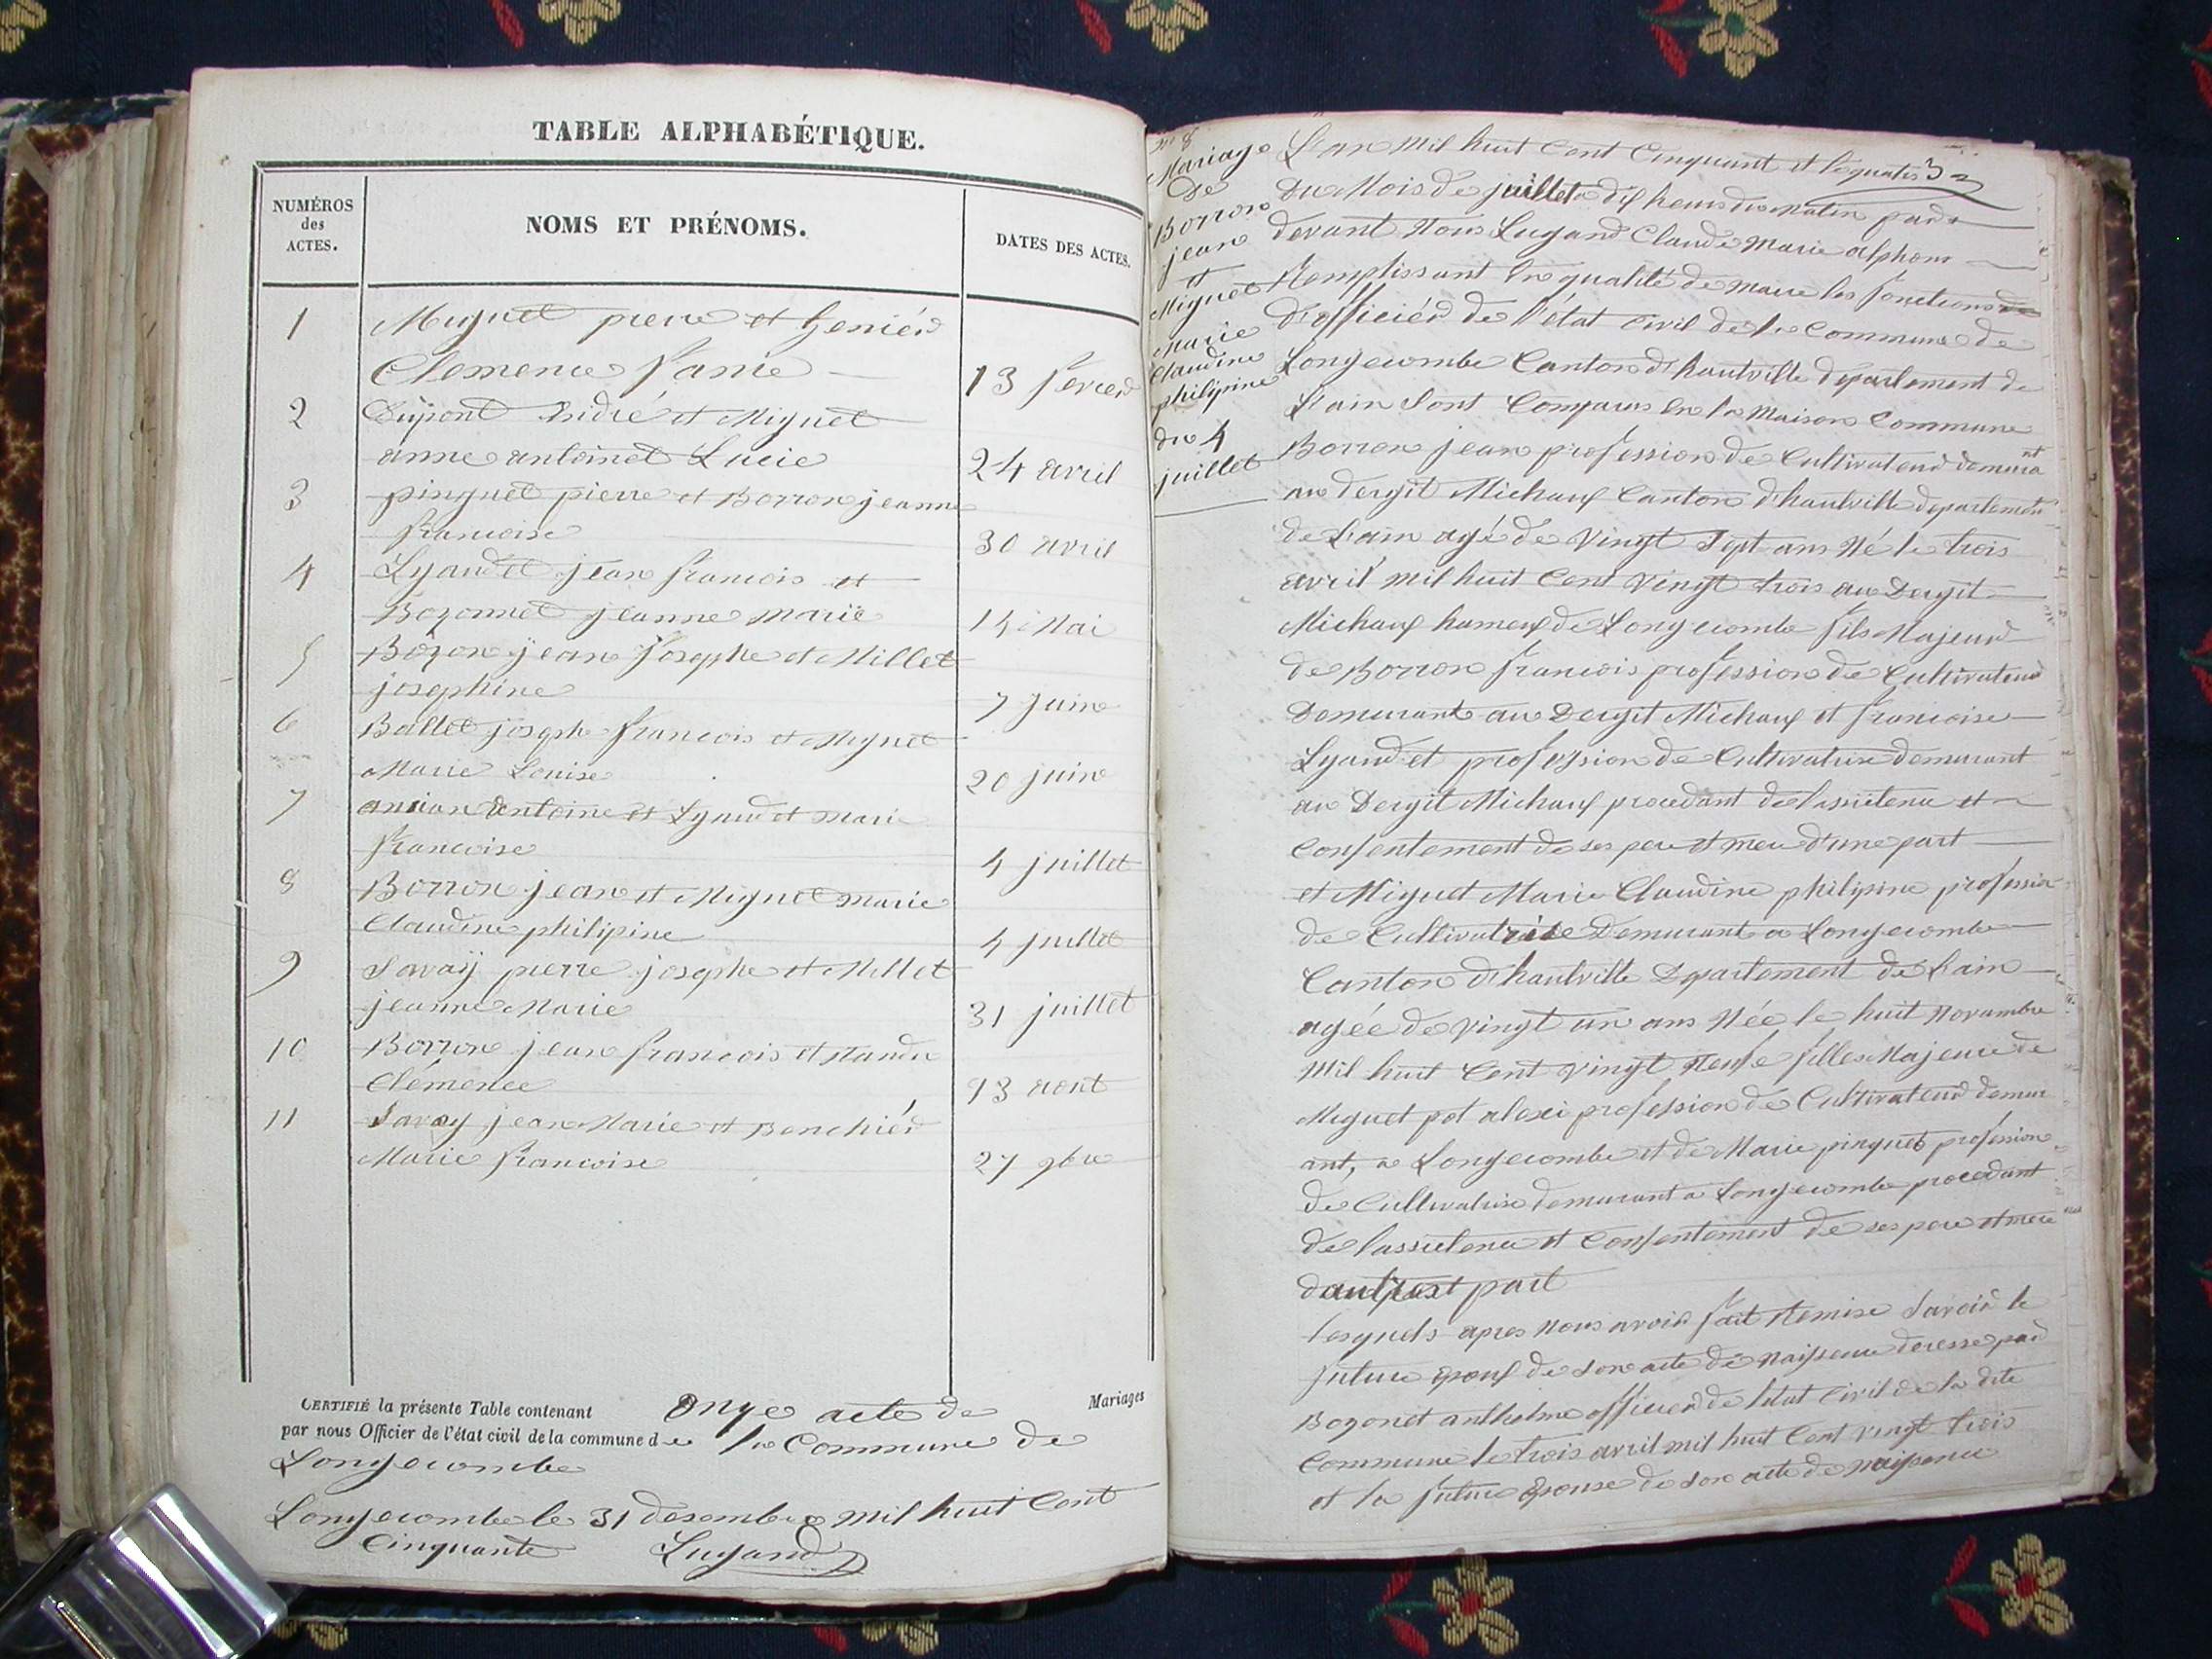 TABLE ALPHABÉTIQUE.
NUMÉROS
des
ACTES.
NOMS ET PRÉNOMS.
DATES DES ACTES.
1 Miguet pierre et
Clemence 13
2 Dupont André et Miguet
anne antoinet Lucie 24 avril
3 pinguet pierre et Borron jeanne
francoise 30 avril
4 Lyaudet jean francois et
Bozonnet jeanne Marie 14 Mai
5 Bozon jean Josephe et Millet
josephine 7 Juin
6 Ballet josephe francois et Miguet
Marie Louise 20 juin
7 ancian Antoine et Lyaudet marie
francoise 4 juillet
8 Borron jean et Miguet marie
Claudine philipine 4 juillet
9 Savaÿ pierre josephe et Millet
jeanne Marie 31 juillet
10 Borron jean francois et
Clémence 13 aout
11 Savay jean Marie et
Marie francoise 27 9bre
CERTIFIÉ la présente Table contenant Onze acte de Mariages
par nous Officier de l'état civil de la commune de la Commune de
Longecombe
Longecombe le 31 desembre mil huit Cent
Cinquante Lugand
n° 8
Mariage
De
Borron
jean
et
Miguet
Marie
Claudine
philipine
du 4
juillet
3
L'an Mil huit Cent Cinquant et le quatre
Du Mois de juillet a dix heures du Matin par
devant Nous Lugand Claude Marie alphons
Remplissant en qualité de maire les fonctions
D'officiér de l'état civil de la Commune de
Longecombe Canton d'hautville departement de
L'ain Sont Comparus en la Maison Commune
Borron jean profession de Cultivateur demurant
au dergit Michaux Canton d'hautville departement
de L'ain agé de Vingt Sept ans Né le trois
avril mil huit Cent Vingt trois au Dergit
Michaux hameux de Longecombe fils Majeur
de Borron francois profession de Cultivateur
Demurant au Dergit Michaux et francoise
Lyaudet profession de Cultivatrise demurant
au Dergit Michaux procedant de lassistence et
Consentement de ses pere et mere d'une part
et Miguet Marie Claudine philipine profession
de Cultivatrise Demurant a Longecombe
Canton d'hautville Departement de L'ain
agée de vingt un ans Née le huit Novambre
Mil huit Cent Vingt Neufe filles Majeure de
Miguet pot alexi profession de Cultivateur demur
ant, a Longecombe et de Marie pinguet profession
de Cultivatrise demurant a Longecombe procedant
de lassistence et Consentement de ses pere et mere
part
lesquels apres Nous avoir fait Remise Savoir le
future epoux de son acte de Naissence deresse par
Bozonet anthelme officier de letat Civil de la dite
Commune le trois avril mil huit Cent vingt trois
et la future Epouse de son acte de naissance